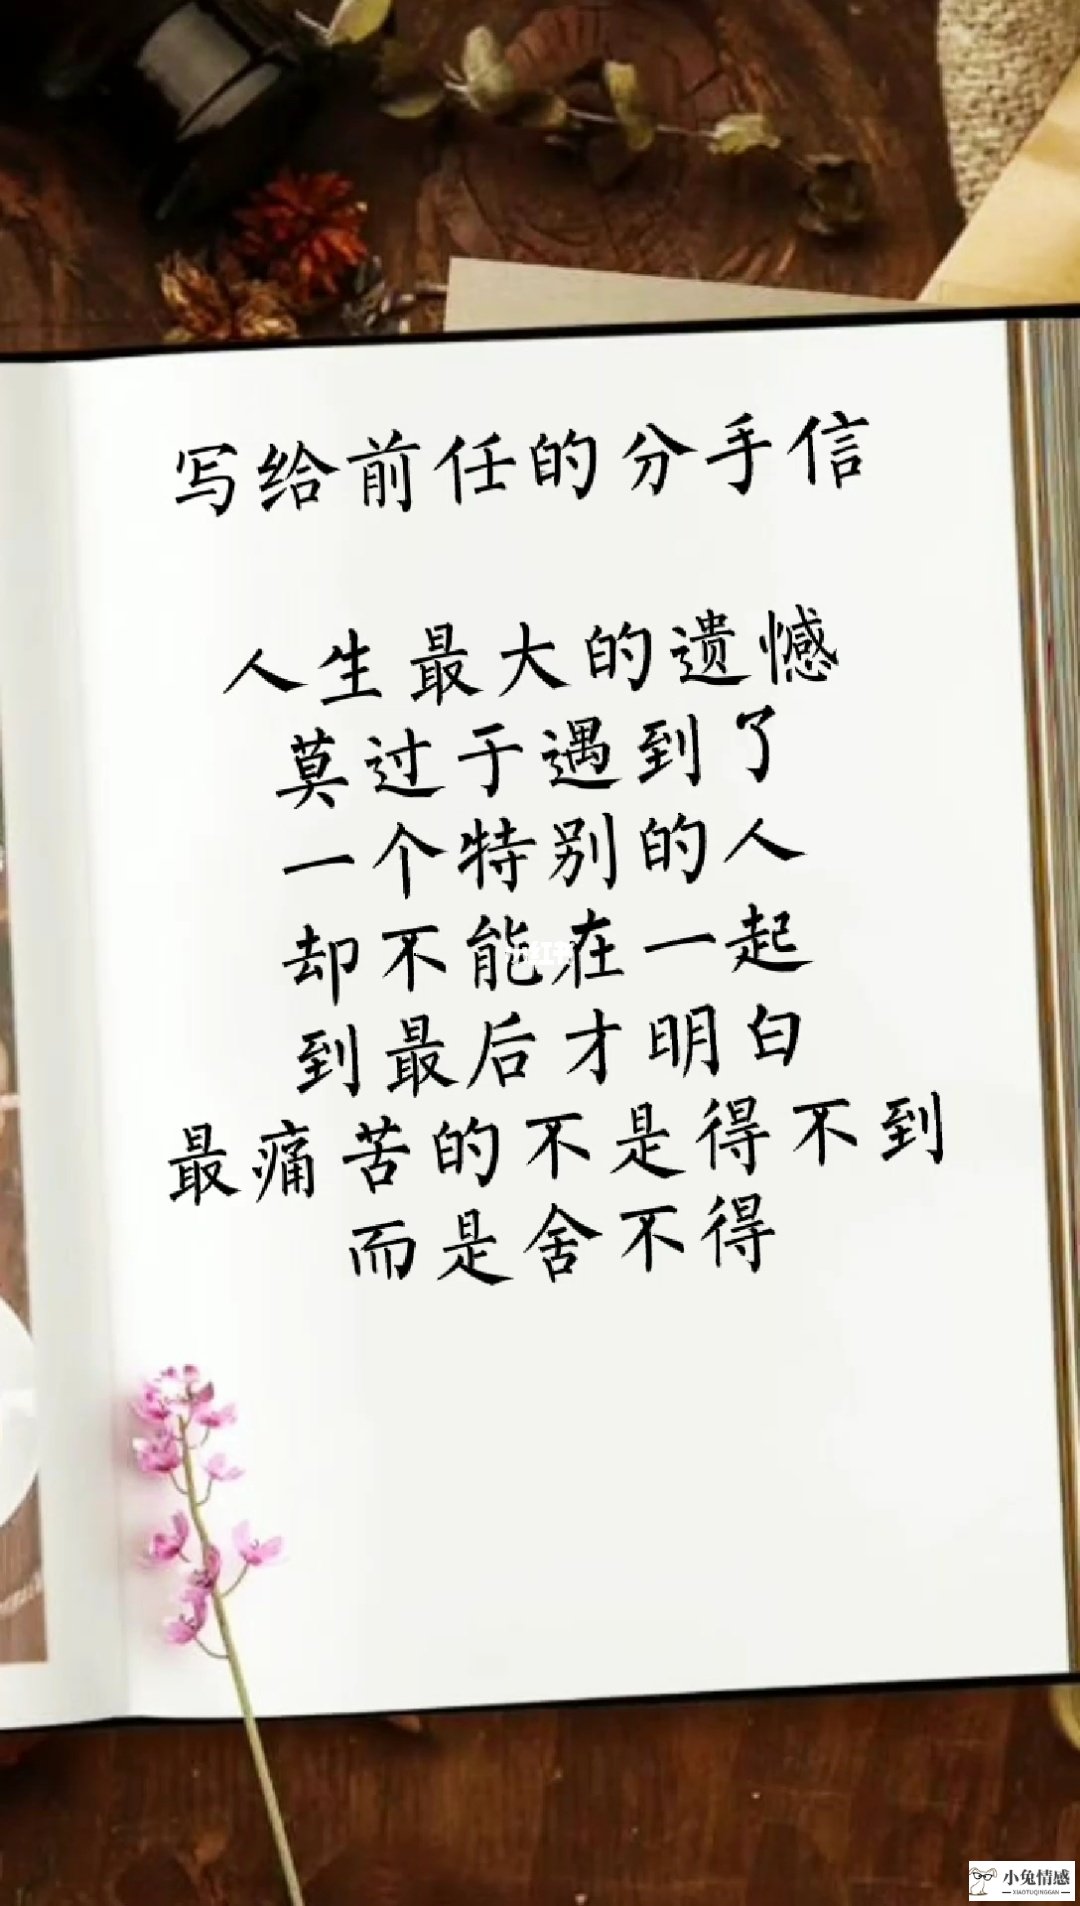 写给前任的分手信
人生最大的遗憾
莫过于遇到了
一个特别的人
却不能在一起
到最后才明白
最痛苦的不是得不到
而是舍不得
小红书
小兔情感
XIAOTUQINGGAN